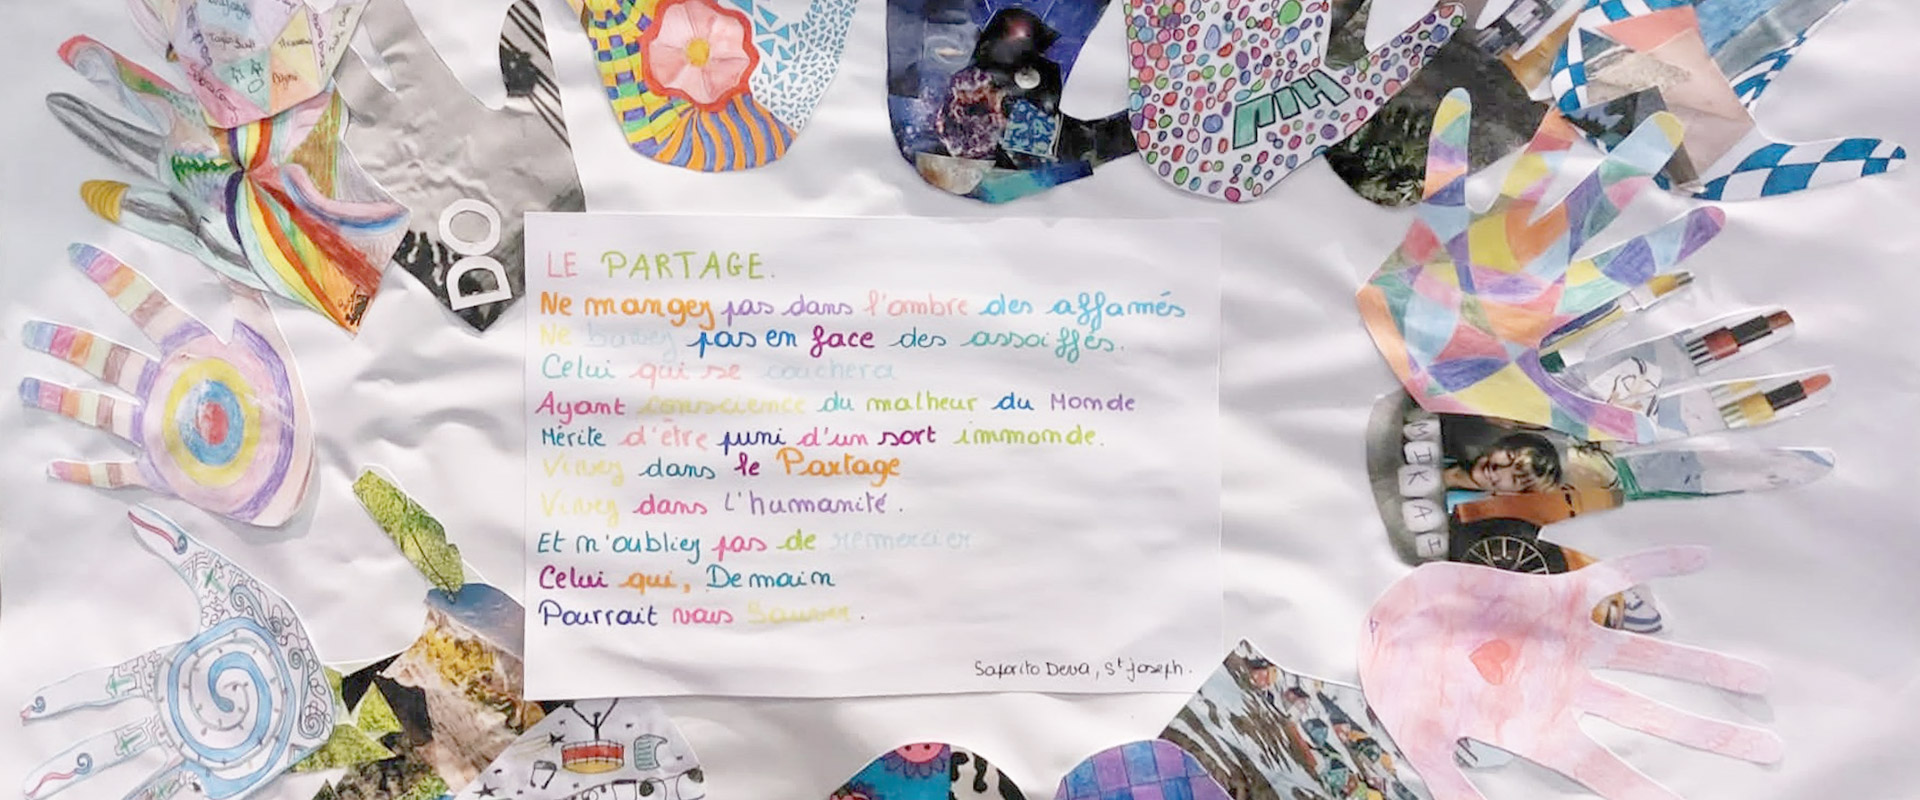 DO
LE PARTAGE.
Ne mangez pas dans l'ombre des affamés
Ne buvez pas en face des assoiffés.
Celui qui se couchera
Ayant conscience du malheur du Monde
Mérite d'être puni d'un sort immonde.
Vivez dans le Partage
Vivez dans l'humanité.
Et n'oubliez pas de remercier
Celui qui, Demain
Pourrait vous Sauver.
Saporito Deva, St joseph.
MIKAAI